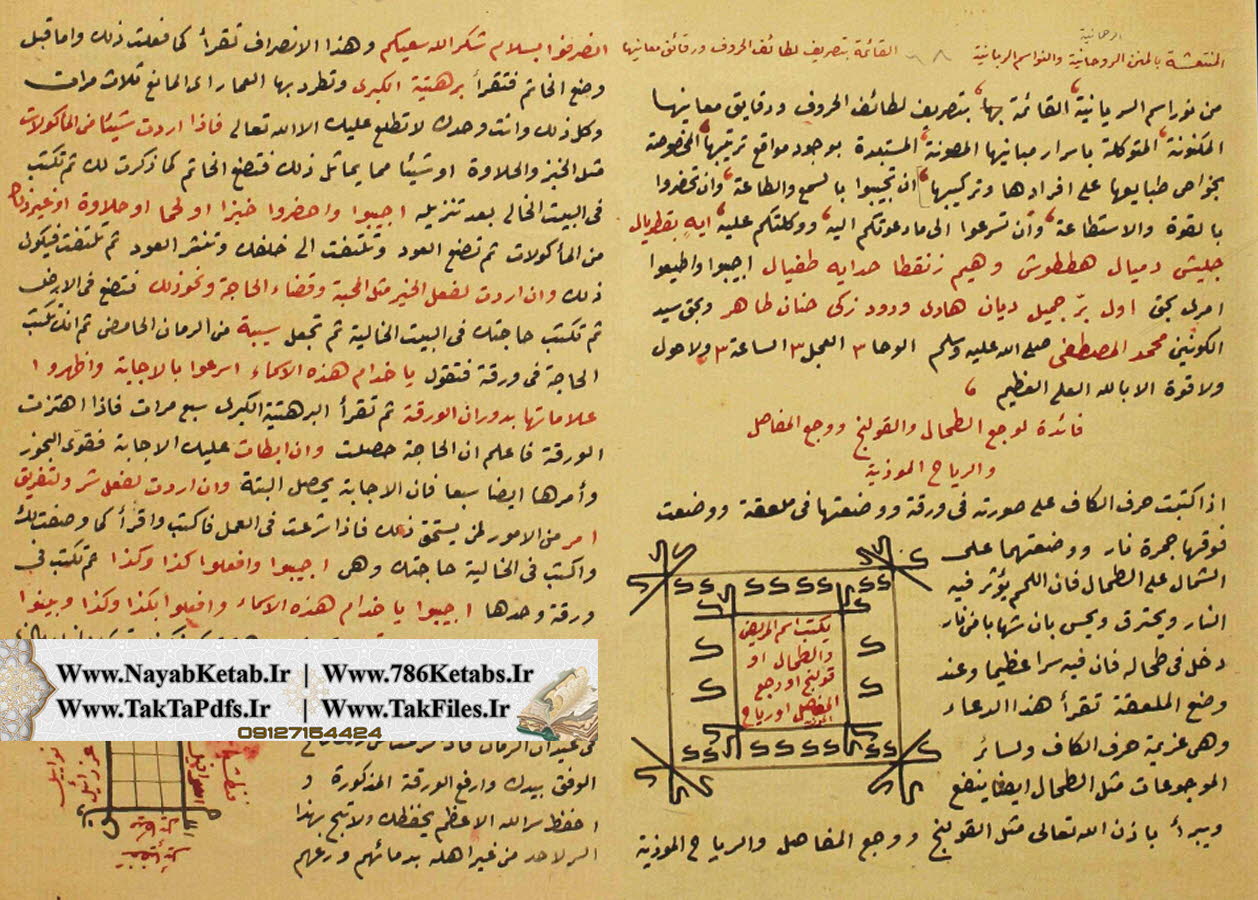 المنتعشة بالمنن الروحانية والنواسم الربانية القائمة بتصريف لطائف الحروف ورقائق معانيها
الرحانية
من نوراسم السريانية القائمة بها بتصريف لطائف الحروف ورقايق معانيها
المكنونة المتوكلة باسرار مبانيها المصونة المستبدة بوجود مواقع ترتيبها المخصوصة
بخواص طبايعها على افرادها وتركيبها ان تجيبوا بالسمع والطاعة وان تحضروا
بالقوة والاستطاعة وان تسرعوا الى ما دعوتكم اليه ووكلتكم عليه ايه بقطريال
جليش دميال هططوش وهيم زنقطا حدايه طفيال اجيبوا واطيعوا
امرك بحق اول برّ جميل ديان هادى ودود زكى حنان طاهر وبحق سيد
الكونين محمد المصطفى صلى الله عليه وسلم الوحا ٣ العجل ٣ الساعة ٣ ولا حول
ولا قوة الا بالله العلى العظيم
فائدة لوجع الطحال والقولنج ووجع المفاصل
والرياح الموذية
اذا كتبت حرف الكاف على صورته فى ورقة ووضعتها فى ملعقة ووضعت
فوقها جمرة نار ووضعتهما على
الشمال على الطحال فان اللحم يؤثر فيه
النار ويحترق ويحس بان شهابا من نار
دخل فى طحاله فان فيه سرا عظيما وعند
وضع الملعقة تقرأ هذا الدعاء
وهى عزيمة حرف الكاف ولسائر
الموجوعات مثل الطحال ايضا ينفع
ويبرأ باذن الله تعالى مثل القولنج ووجع المفاصل والرياح الموذية
يكتب اسم المريض
والطحال او
قولنج او وجع
المفاصل او رياح
الموذية
انصرفوا بسلام شكر الله سعيكم وهذا الانصراف تقرأ كما فعلت ذلك واما قبل
وضع الخاتم فتقرأ برهتية الكبرى وتطرد بها العمار اى المانع ثلاث مرات
وكل ذلك وانت وحدك لا تطلع عليك الا الله تعالى فاذا اردت شيئا من الماكولات
مثل الخبز والحلاوة او شيئا مما يماثل ذلك فتضع الخاتم كما ذكرت لك ثم تكتب
فى البيت الخالى بعد تنزيله اجيبوا واحضروا خبزا او لحما او حلاوة او غير ذلك
من المأكولات ثم تضع العود وتلتفت الى خلفك وتنشر العود ثم تلتفت فيكون
ذلك وان اردت لفعل الخير مثل المحبة وقضاء الحاجة ونحو ذلك فتضع فى الارض
ثم تكتب حاجتك فى البيت الخالية ثم تجعل سيبة من الرمان الحامض ثم انك تكتب
الحاجة فى ورقة فتقول يا خدام هذه الاسماء اسرعوا بالاجابة واظهروا
علاماتها بدوران الورقة ثم تقرأ البرهتية الكبرى سبع مرات فاذا اهتزت
الورقة فاعلم ان الحاجة حصلت وان ابطات عليك الاجابة فقوى البخور
وأمرها ايضا سبعا فان الاجابة يحصل البتة وان اردت لفعل شر ولتفريق
امر من الامور لمن يستحق ذلك فاذا شرعت فى العمل فاكتب واقرأ كما وصفت لك
واكتب فى الخالية حاجتك وهى اجيبوا وافعلوا كذا وكذا ثم تكتب فى
ورقة وحدها اجيبوا يا خدام هذه الاسماء وافعلوا بكذا وكذا وبينوا
Www.NayabKetab.Ir | Www.786Ketabs.Ir
Www.TakTaPdfs.Ir | Www.TakFiles.Ir
09127154424
الوفق بيدك وارفع الورقة المذكورة و
احفظ سر الله الاعظم يحفظك ولا تبح بهذا
السر لاحد من غير اهله بدمائهم ورعهم